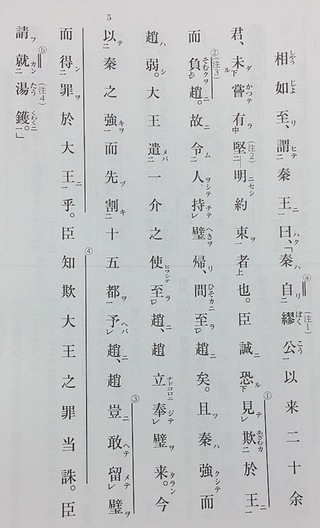 相如至、謂秦王曰、「秦自繆公以来二十余
君、未嘗有堅明約束者也。臣誠恐見欺於王
而負趙。故令人持璧帰、間至趙矣。且秦強而
趙弱。大王遣一介之使至趙、趙立奉璧来。今
以秦之強而先割十五都予趙、趙豈敢留璧
而得罪於大王乎。臣知欺大王之罪当誅。臣
請就湯鑊。」